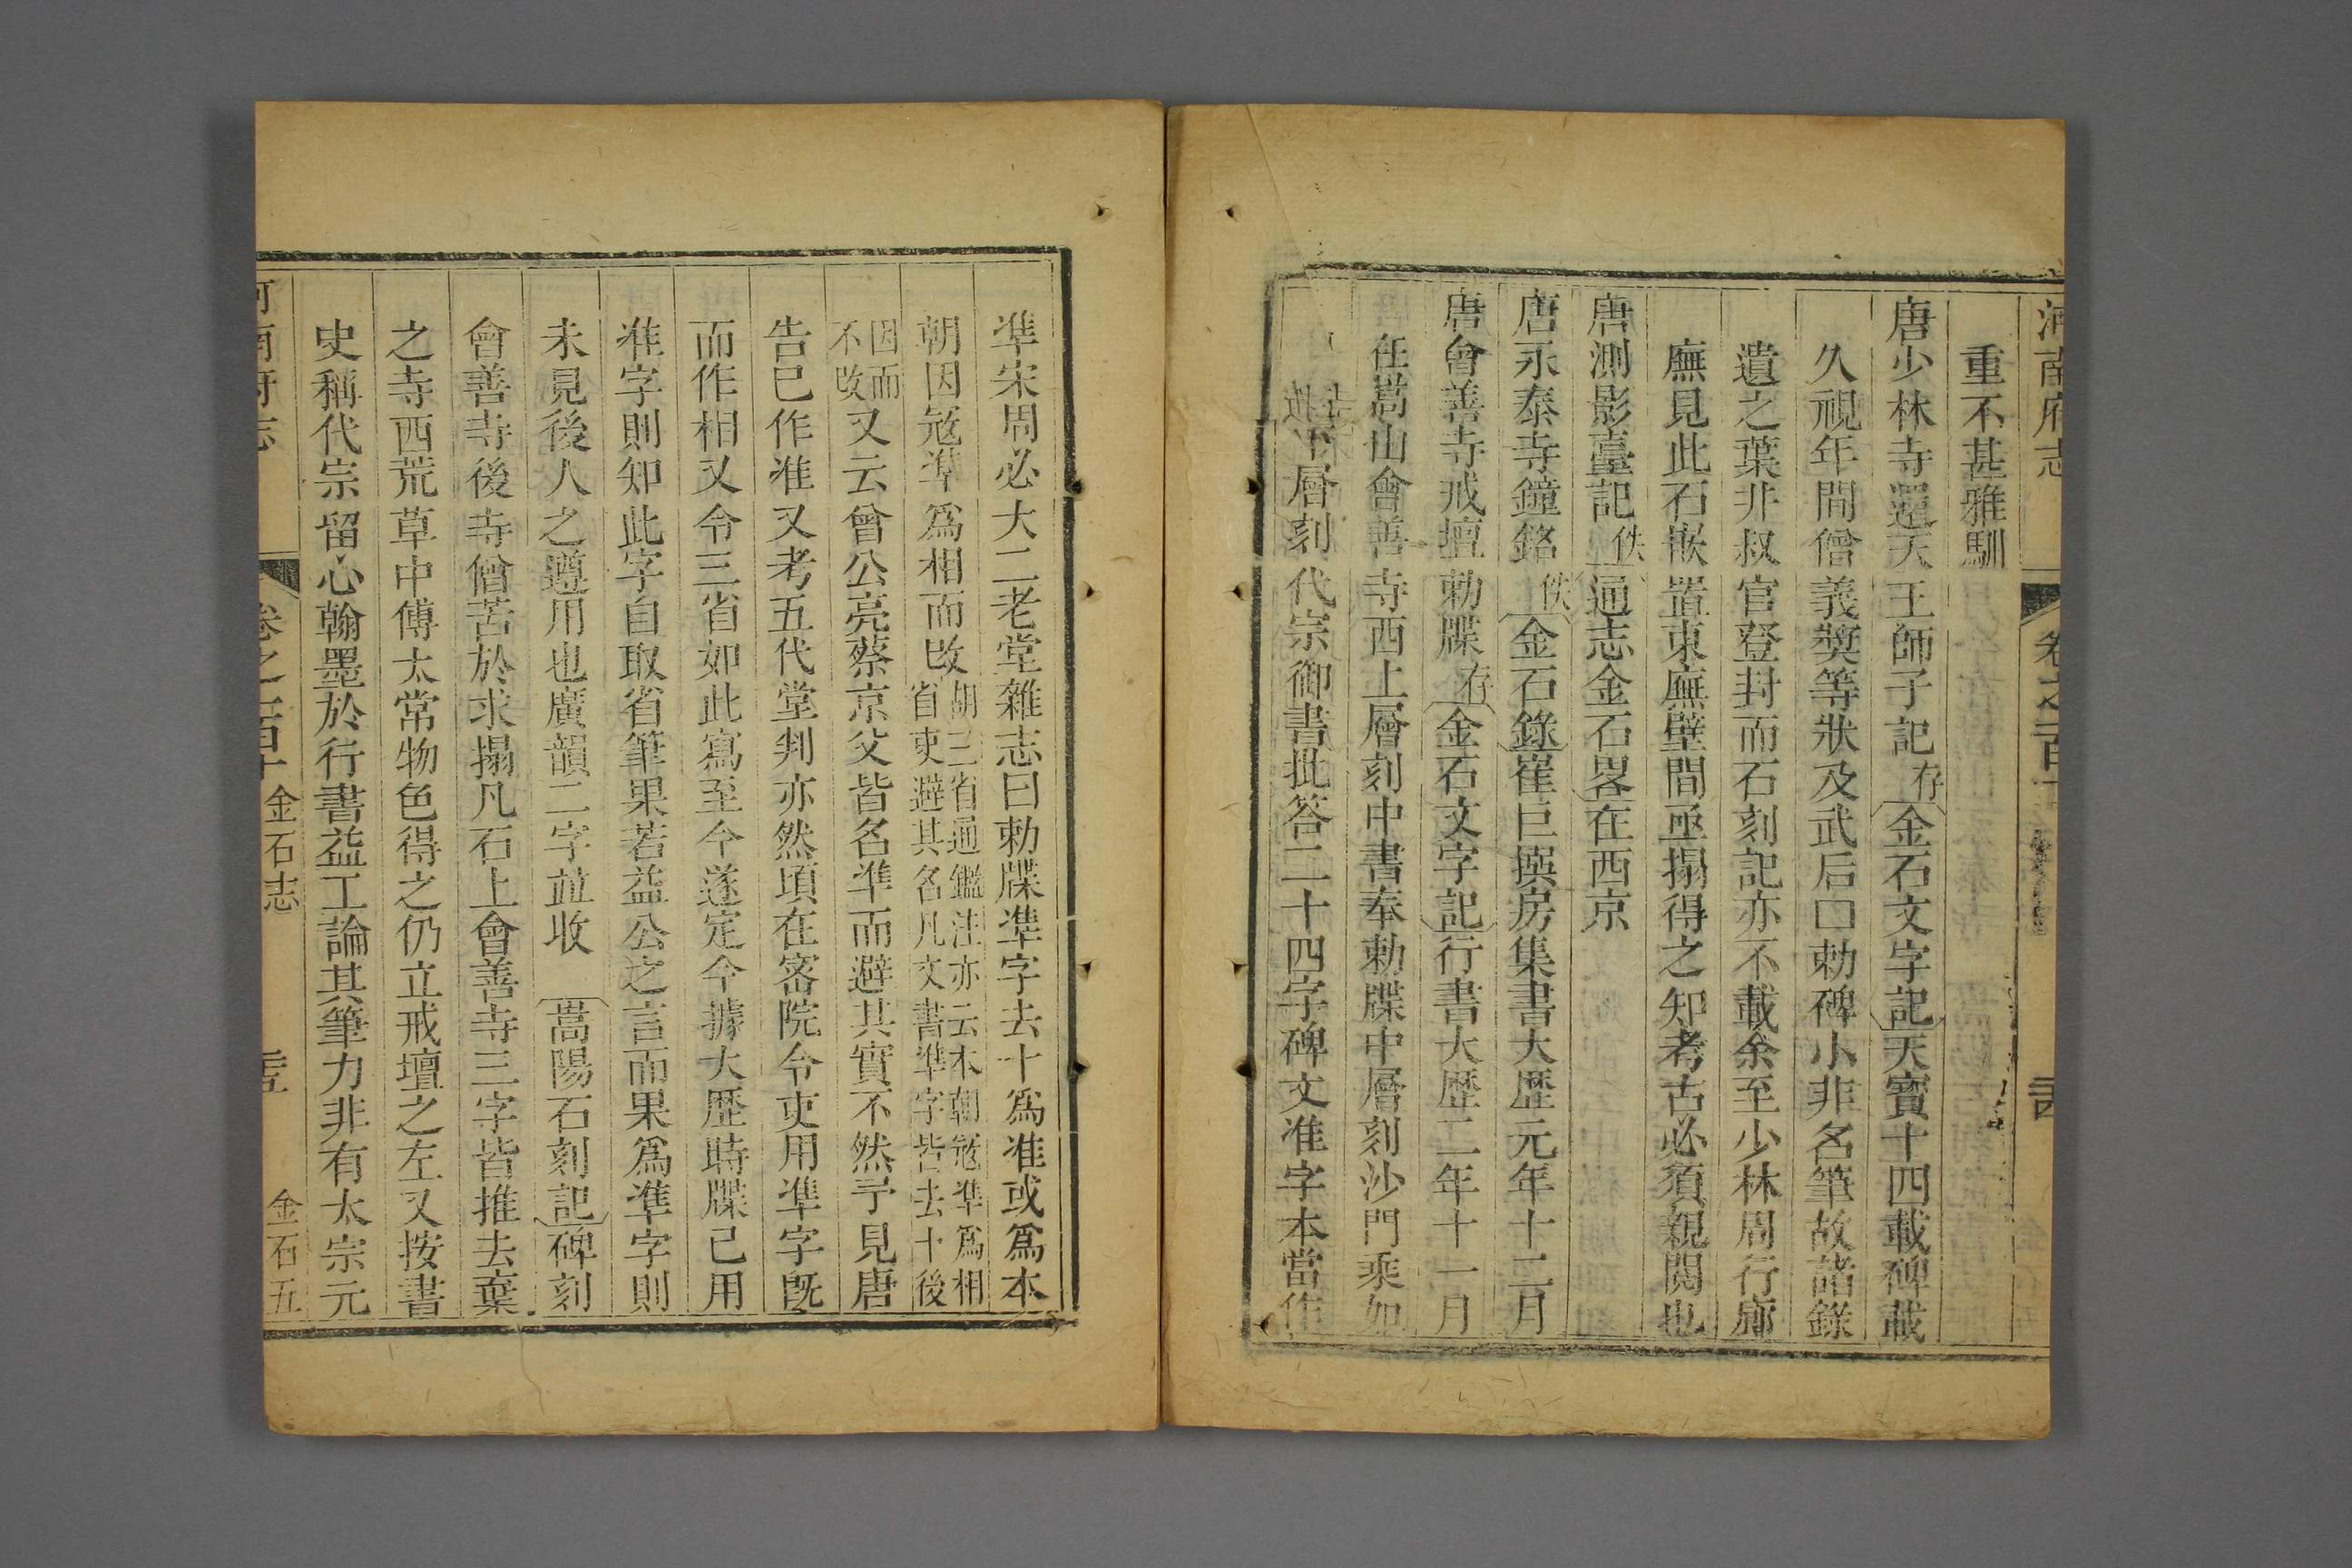 河南府志
卷之百十
重不甚雅馴
唐少林寺還天王師子記存金石文字記天寶十四載碑載
久視年間僧義獎等狀及武后口勅碑小非名筆故諸錄
遺之葉井叔官登封而石刻記亦不載余至少林周行廊
廡見此石嵌置東廡壁間亟搨得之知考古必須親閱也
唐測影臺記佚通志金石畧在西京
唐永泰寺鐘銘佚金石錄崔巨撰房集書大歷元年十二月
唐會善寺戒壇勅牒存金石文字記行書大歷二年十一月
在嵩山會善寺西上層刻中書奉勅牒中層刻沙門乘如
下層刻代宗御書批答二十四字碑文准字本當作
準宋周必大二老堂雜志曰勅牒準字去十爲准或爲本
朝因冦準爲相而改胡三省通鑑注亦云本朝冦準爲相
省吏避其名凡文書準字皆去十後
因而
不改又云曾公亮蔡京父皆名準而避其實不然予見唐
告已作准又考五代堂判亦然頃在密院令吏用準字旣
而作相又令三省如此寫至今遂定今據大歷時牒已用
准字則知此字自取省筆果若益公之言而果爲準字則
未見後人之遵用也廣韻二字並收 嵩陽石刻記碑刻
會善寺後寺僧苦於求搨凡石上會善寺三字皆推去棄
之寺西荒草中傅太常物色得之仍立戒壇之左又按書
史稱代宗留心翰墨於行書益工論其筆力非有太宗元
河南府志
卷之百十金石志
金石五